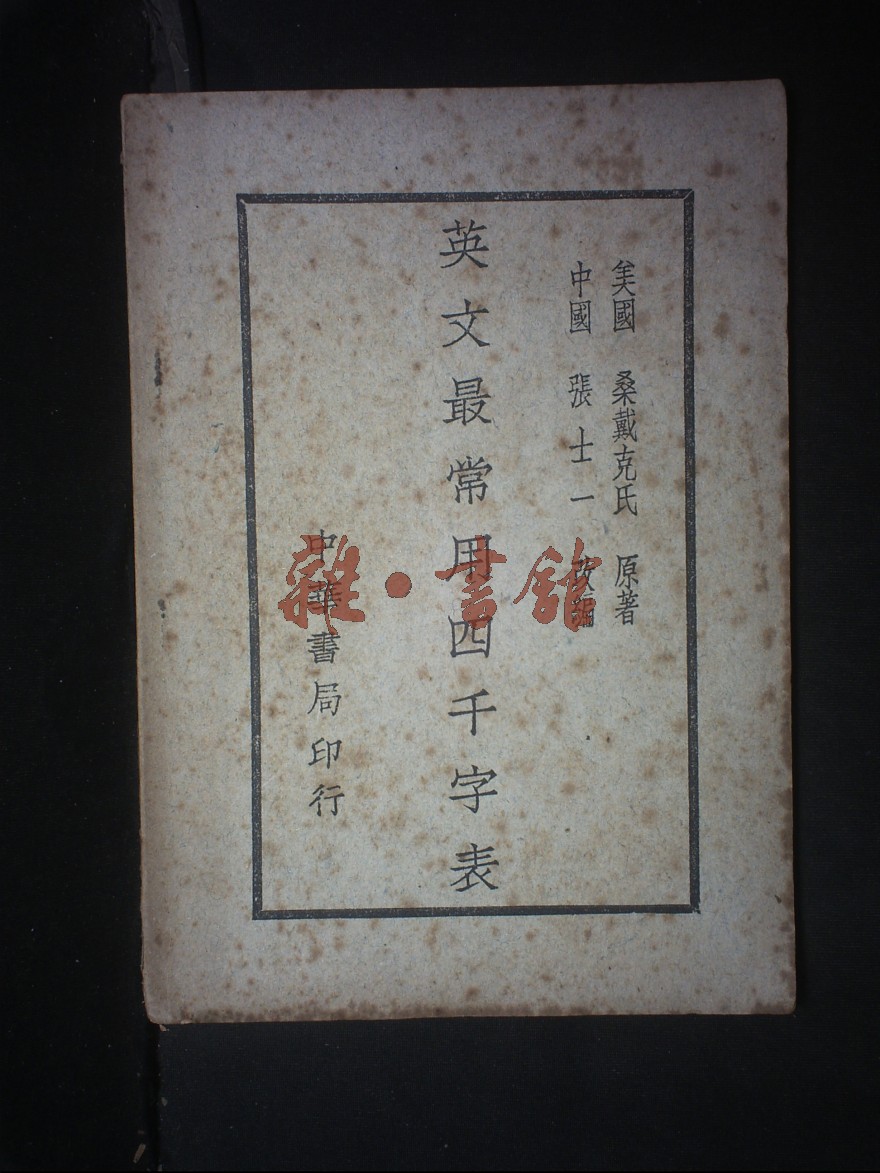 美國 桑戴克氏 原著
中國 張士一 改編
英文最常用四千字表
中華書局印行
雜·書館